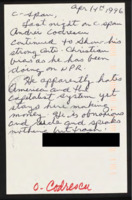 Apr 14th, 1996
C-Span,
Last night on C-Span
Andrei Codrescu
continued to show his
strong anti-Christian
bias as he has been
doing on NPR.
He apparently hates
America and the
capitalist system yet
stays here making
money. He is obnoxious
and and speaks
nothing but trash.
O. Codrescu